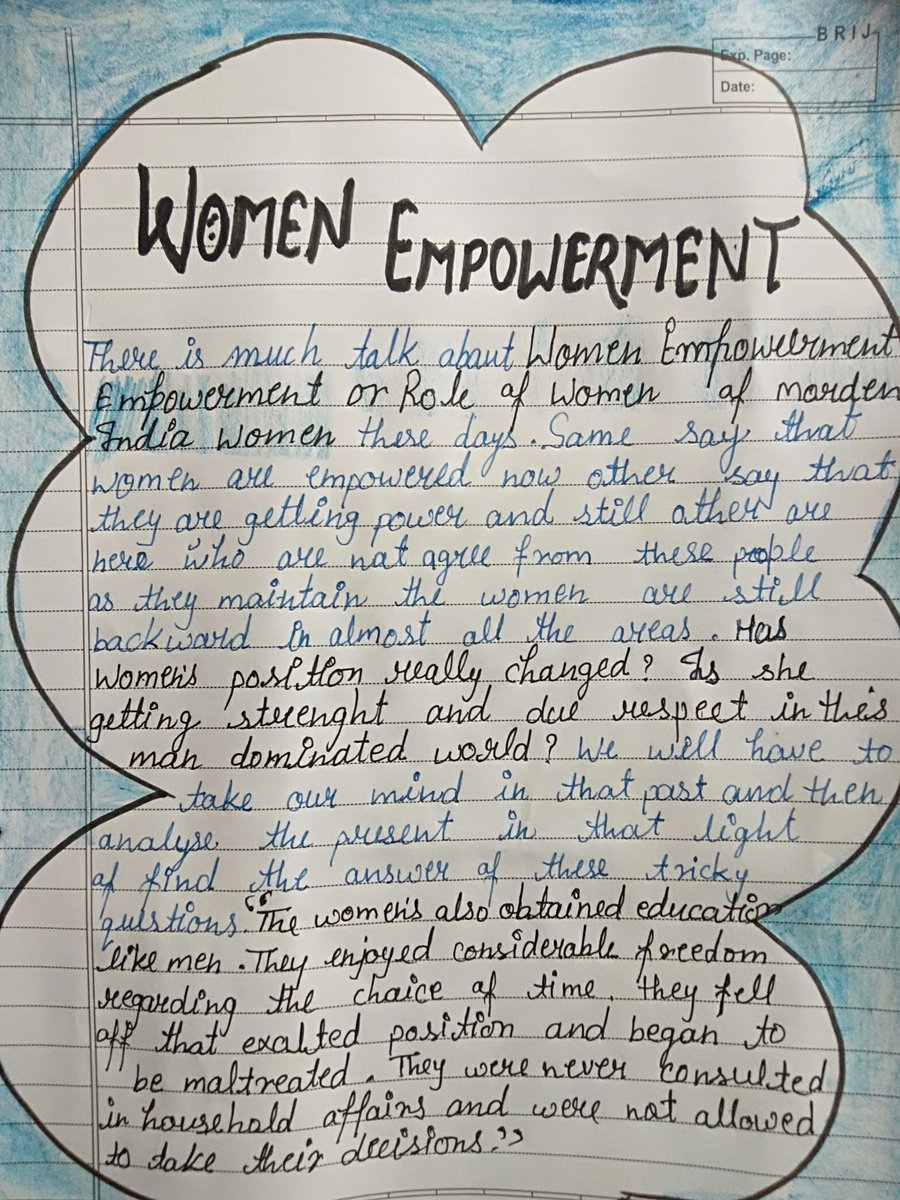 BRIJ
Exp. Page:
Date:
WOMEN EMPOWERMENT
There is much talk about Women Empowerment
Empowerment or Role of Women of morden
India Women these days. Same say that
women are empowered now other say that
they are getting power and still other are
here who are not agree from these people
as they maintain the women are still
backward in almost all the areas. Has
women's position really changed? Is she
getting strenght and due respect in this
man dominated world? We will have to
take our mind in that past and then
analyse the present in that light
of find the answer of these tricky
questions. "The women's also obtained education
like men. They enjoyed considerable freedom
regarding the choice of time. they fell
off that exalted position and began to
be maltreated. They were never consulted
in household affairs and were not allowed
to take their decisions."